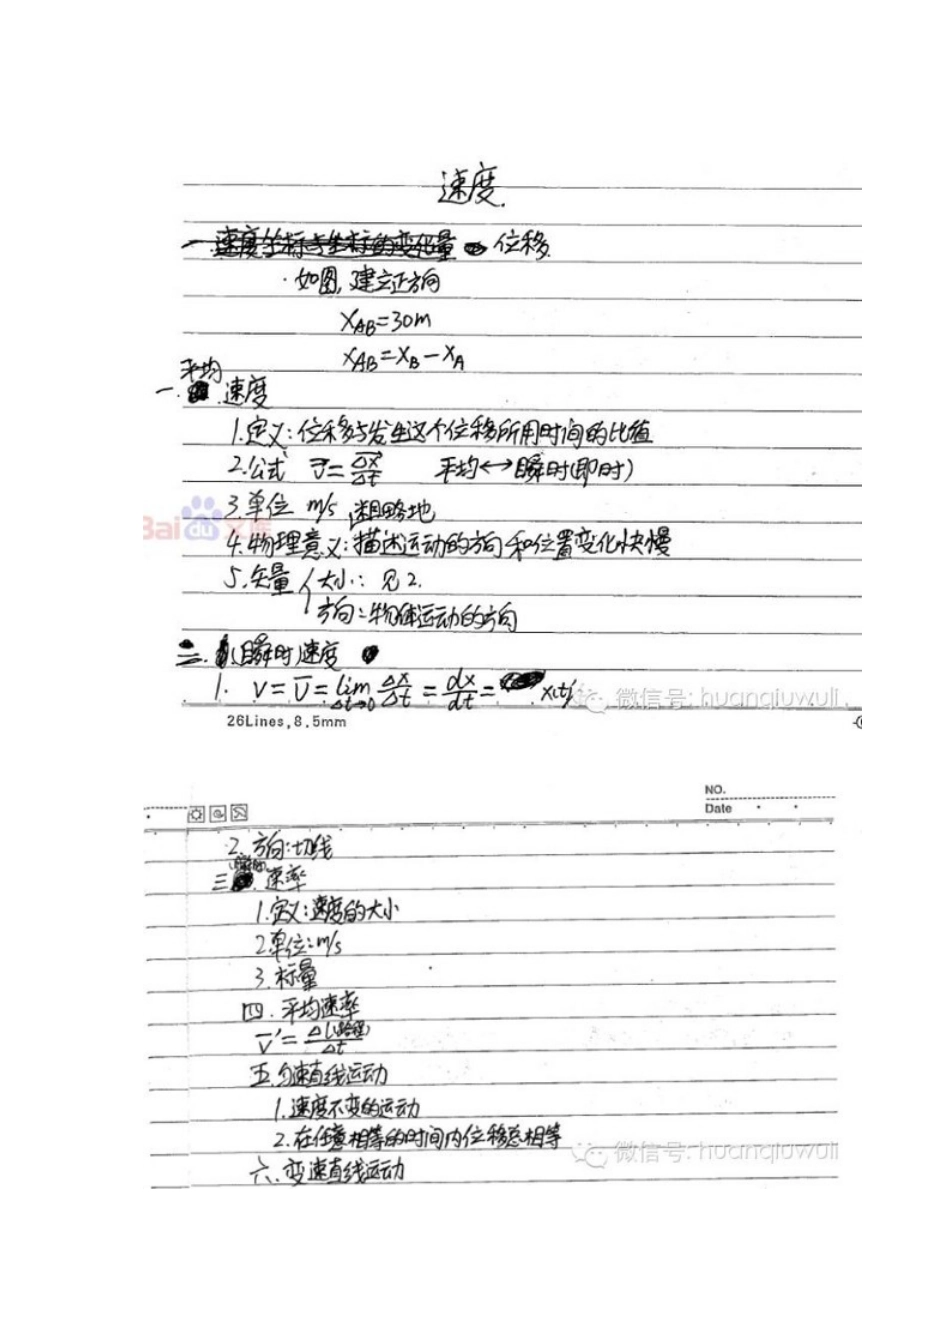 速度.
一 速度坐标与坐标的变化量 位移
·如图,建立正方向
XAB=30m
XAB=XB-XA
平均
一. 速度
1.定义:位移与发生这个位移所用时间的比值
2.公式 v̄=Δx/Δt 平均↔瞬时(即时)
3.单位 m/s 粗略地
Bai du 文库
4.物理意义:描述运动的方向和位置变化快慢
5.矢量{大小:见2.
方向:物体运动的方向
二.(瞬时)速度
1. v=v̄=lim Δt→0 Δx/Δt=dx/dt= x(t)′
微信号: huanqiuwuli
26Lines,8.5mm
NO.
Date
2.方向:切线
三 速率
1.定义:速度的大小
2.单位:m/s
3.标量
四.平均速率
v̄′=ΔL(路程)/Δt
五.匀速直线运动
1.速度不变的运动
2.在任意相等的时间内位移总相等
微信号: huanqiuwuli
六.变速直线运动